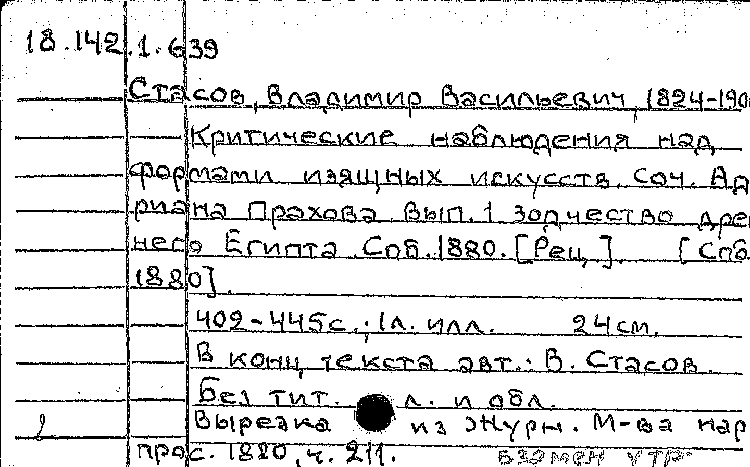 18.142.1.639
Стасов, Владимир Васильевич, 1824-190
Критические наблюдения над
формами изящных искусств. Соч. Ад
риана Прахова. Вып. 1 Зодчество дре
него Египта. Спб. 1880. [Рец.]. [Спб
1880].
402-445с.; 1л. илл. 24см.
В конц. текста авт.: В. Стасов.
Без тит. л. и обл.
Вырезка из Журн. М-ва нар
прос. 1880, ч. 211.